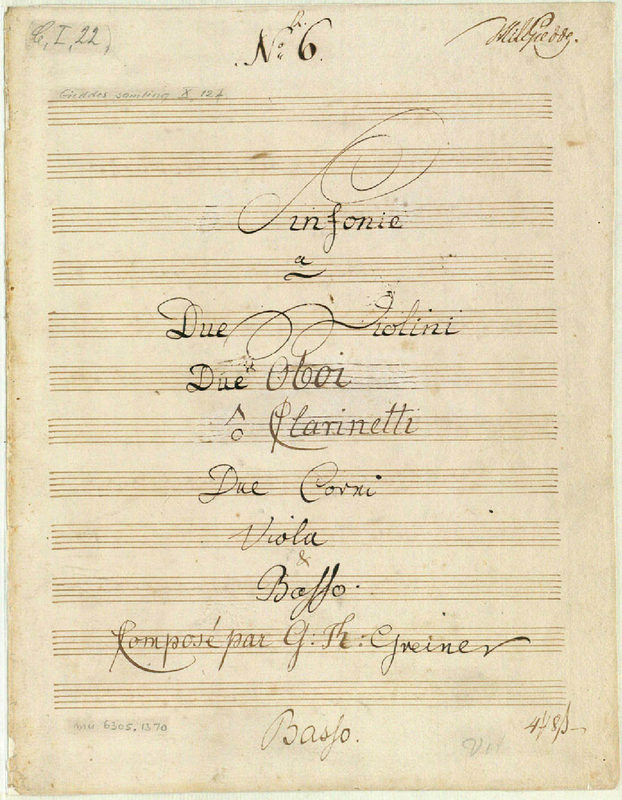 C, I, 22,
No 6.
Gieddes samling X, 12 f
Sinfonie
a
Due Violini
Due Oboi
o Clarinetti
Due Corni
Viola
&
Basso.
Composé par G: Th: Greiner
mu 6305.1370
Basso.